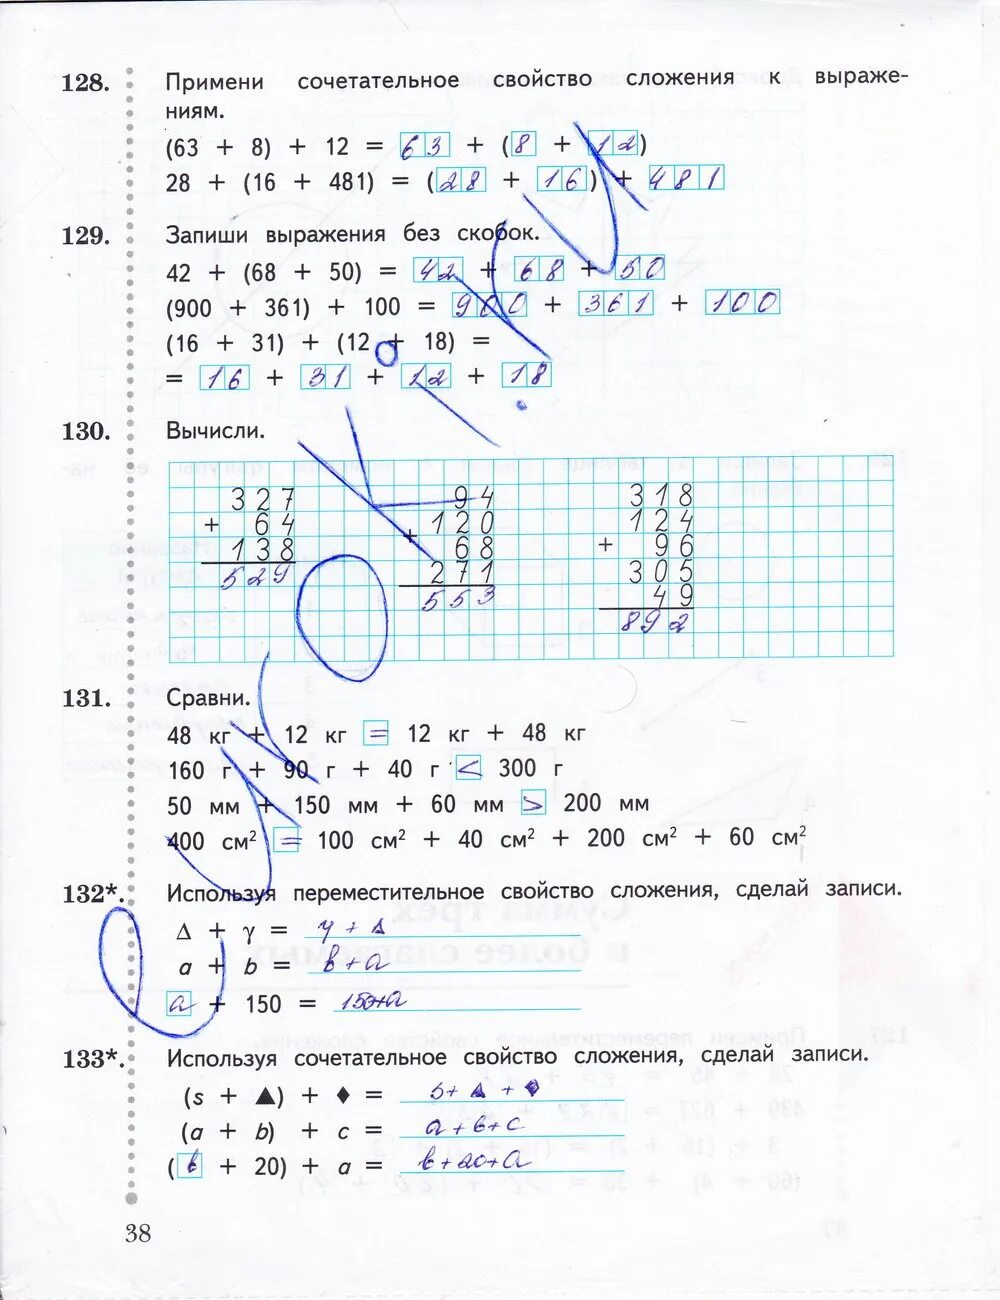 128. Примени сочетательное свойство сложения к выраже-
ниям.
(63 + 8) + 12 = 63 + (8 + 12)
28 + (16 + 481) = (28 + 16) + 481
129. Запиши выражения без скобок.
42 + (68 + 50) = 42 + 68 + 50
(900 + 361) + 100 = 900 + 361 + 100
(16 + 31) + (12 + 18) =
= 16 + 31 + 12 + 18
130. Вычисли.
327 94 318
+ 64 120 124
138 + 68 + 96
529 271 305
553 49
892
131. Сравни.
48 кг + 12 кг = 12 кг + 48 кг
160 г + 90 г + 40 г < 300 г
50 мм + 150 мм + 60 мм > 200 мм
400 см² = 100 см² + 40 см² + 200 см² + 60 см²
132*. Используя переместительное свойство сложения, сделай записи.
Δ + γ = γ + Δ
a + b = b + a
a + 150 = 150 + a
133*. Используя сочетательное свойство сложения, сделай записи.
(s + ▲) + ♦ = s + ▲ + ♦
(a + b) + c = a + b + c
(b + 20) + a = b + 20 + a
38